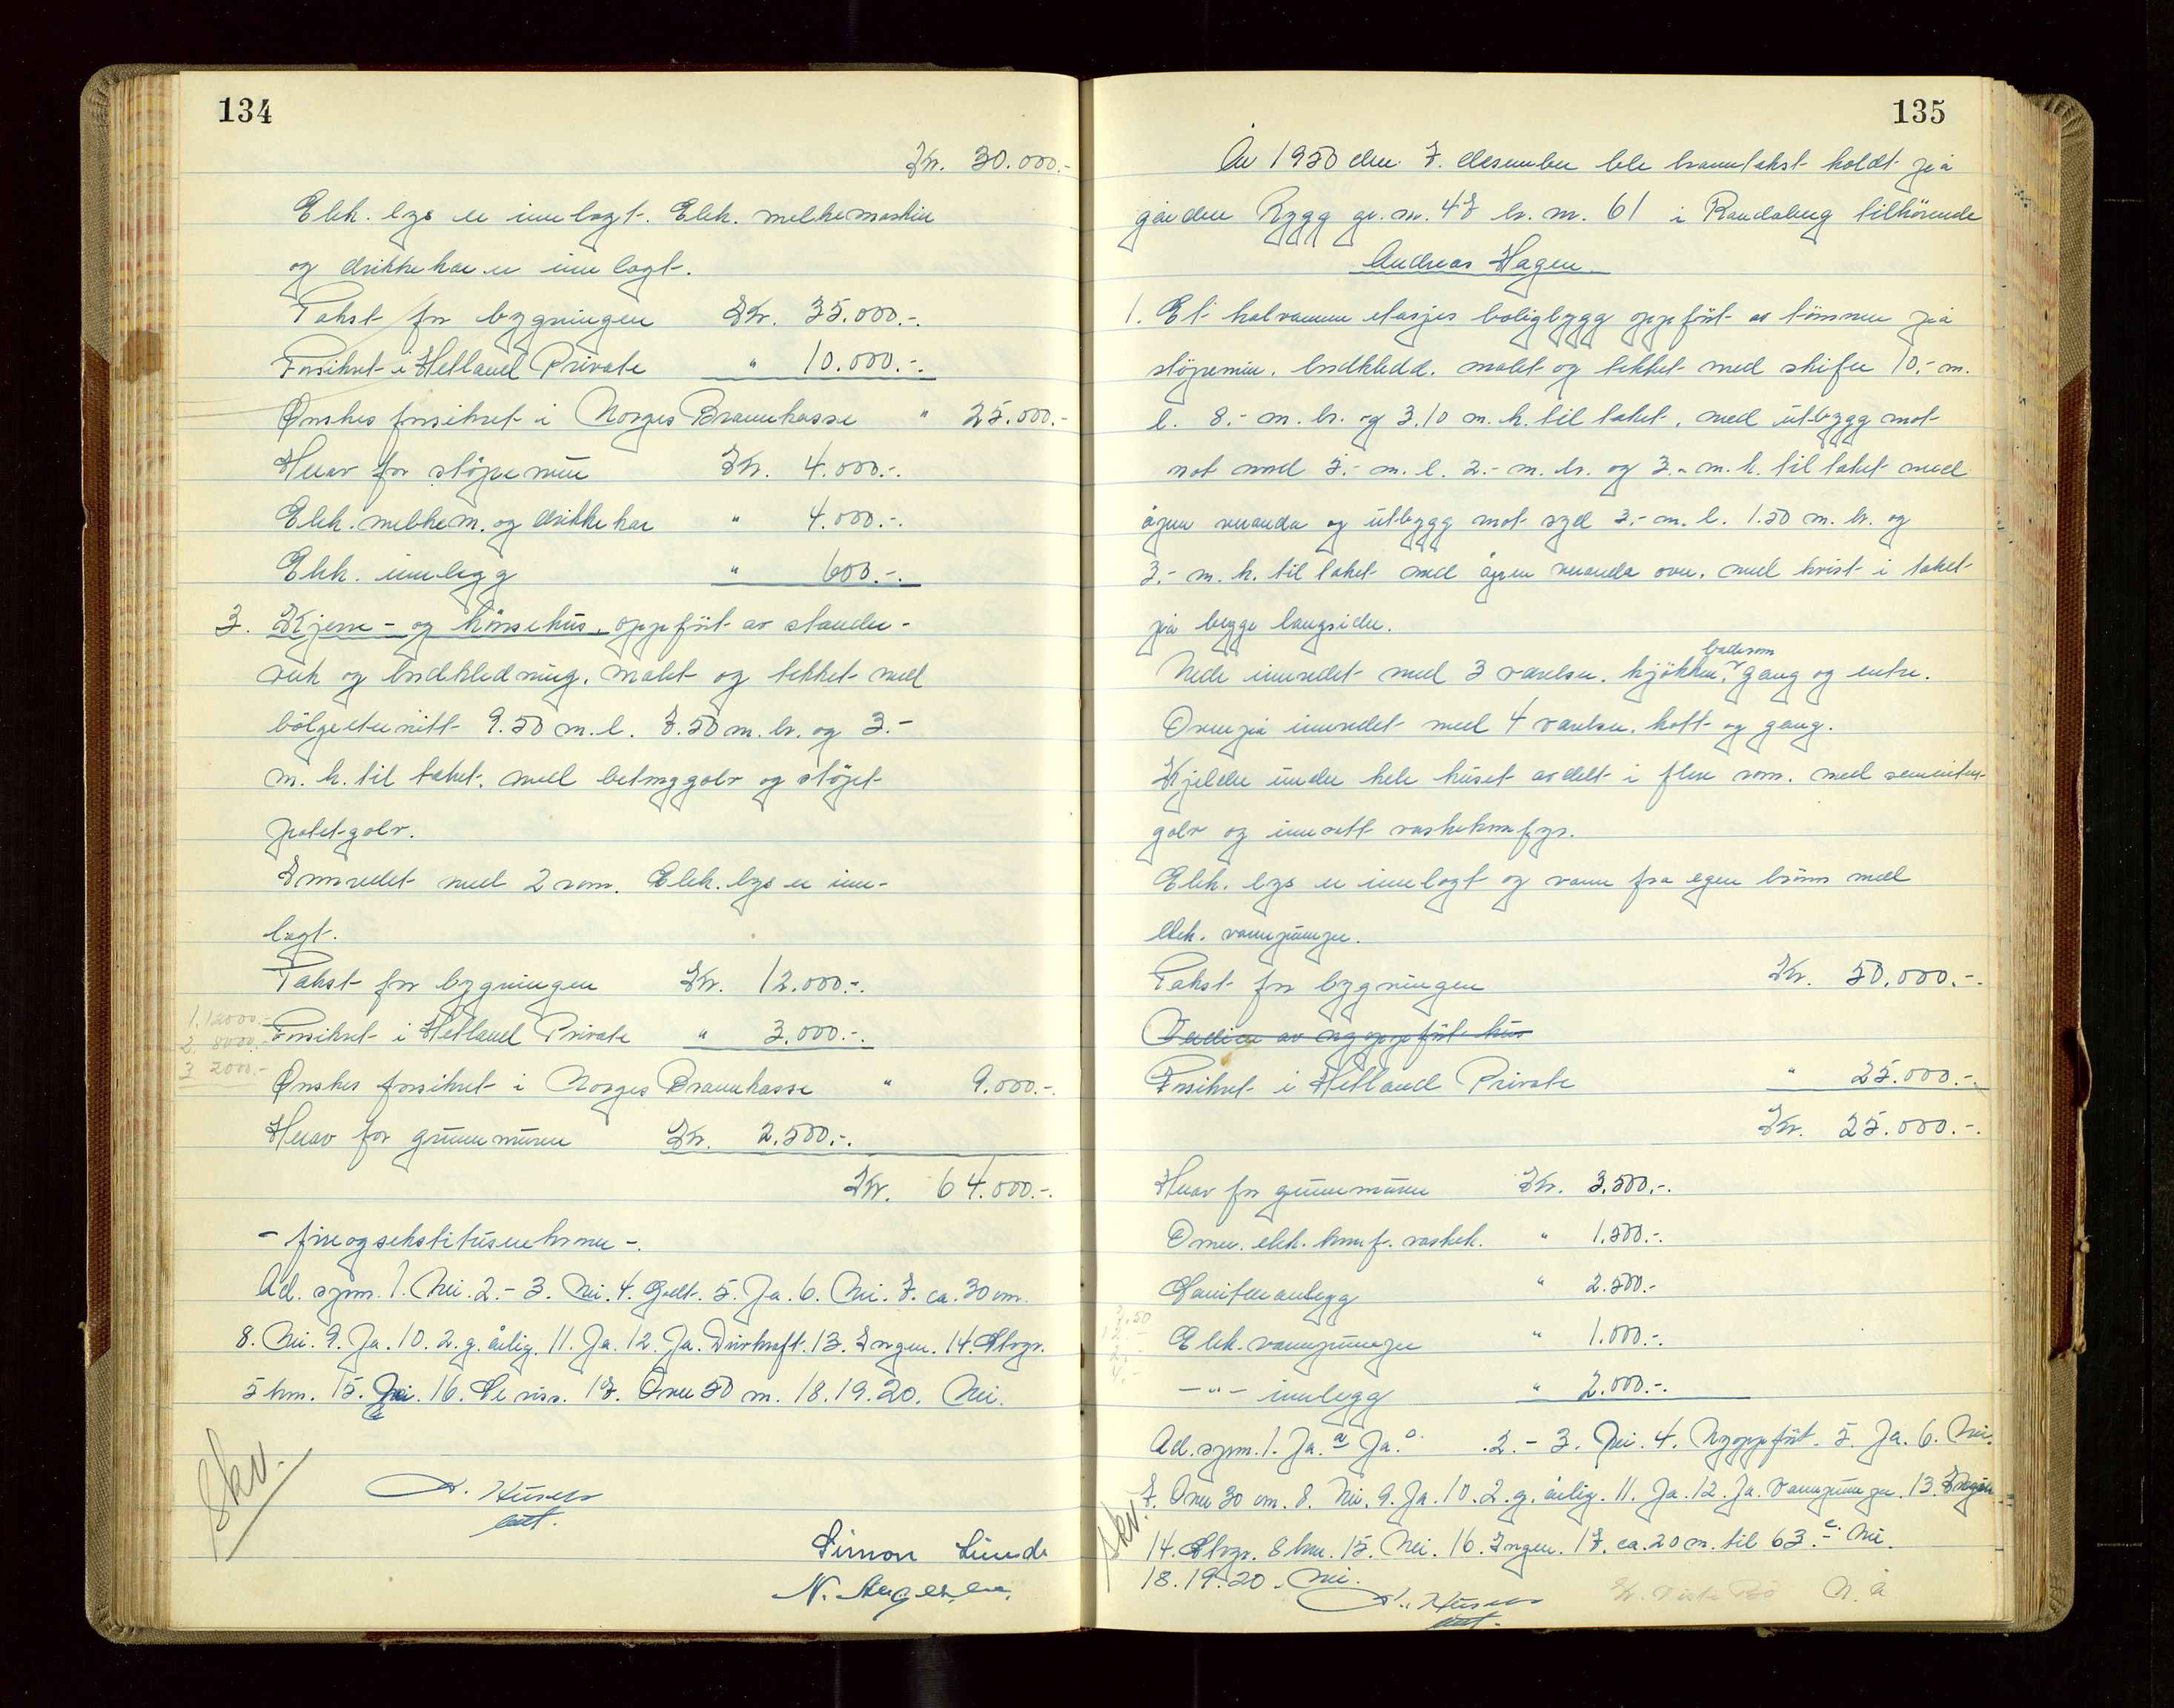 134
Kr. 30.000.-
Elek. lys er innlagt. Elek. melkemaskin
og drikkekar er innlagt.
Takst for bygningen Kr. 35.000.-.
Forsikret i Hetland Private " 10.000.-.
Ønskes forsikret i Norges Brannkasse " 25.000.-
Herav for støpemur Kr. 4.000.-.
Elek. melkem. og drikkekar " 4.000.-.
Elek. innlegg " 600.-.
3. Kjerre- og hønsehus, oppført av stender-
verk og bordkledning, malt og tekket med
bølgeeternitt 9.50 m.l. 7.50 m.br. og 3.-
m.h. til taket, med betonggolv og støpt
potetgolv.
Innredet med 2 rom. Elek. lys er inn-
lagt.
Takst for bygningen Kr. 12.000.-.
1. 12000.-
Forsikret i Hetland Private " 3.000.-.
2. 8000.-
3. 2000.-
Ønskes forsikret i Norges Brannkasse " 9.000.-.
Herav for grunnmuren Kr. 2.500.-.
Kr. 64.000.-.
- fireogsekstitusenkroner -.
Ad. spm. 1. Nei. 2.- 3. Nei. 4. Godt. 5. Ja. 6. Nei. 7. ca. 30 cm.
8. Nei. 9. Ja. 10. 2.g. årlig. 11. Ja. 12. Ja. Drivkraft. 13. Ingen. 14. Stvgr.
5 km. 15. 16. Se riss. 17. Over 50 m. 18.19.20. Nei.
Skv.
Simon Lunde
N.
135
År 1950 den 7. desember ble branntakst holdt på
gården Rygg gr. nr. 47 br. nr. 61 i Randaberg tilhørende
Andreas Hagen
1. Et halvannen etasjes boligbygg oppført av tømmer på
støpemur, bordkledd, malt og tekket med skifer 10.- m.
l. 8.- m. br. og 3.10 m. h. til taket, med utbygg mot
not nord 5.- m. l. 2.- m. br. og 3.- m. h. til taket med
åpen veranda og utbygg mot syd 3.- m. l. 1.50 m. br. og
3.- m. h. til taket med åpen veranda over, med kvist i taket
på begge langsider.
baderom
Nede innredet med 3 værelser, kjøkken, gang og entre.
Ovenpå innredet med 4 værelser, kott og gang.
Kjeller under hele huset avdelt i flere rom, med sementer-
golv og innsatt vaskekomfyr.
Elek. lys er innlagt og vann fra egen brønn med
elek. vannpumpe.
Takst for bygningen Kr. 50.000.-.
Verdien av nyoppført hus
Forsikret i Hetland Private " 25.000.-.
Kr. 25.000.-.
Herav for grunnmuren Kr. 3.500.-.
Ovner. elek. komf. vaskek. " 1.500.-.
Sanitæranlegg " 2.500.-
Elek. vannpumpe " 1.000.-.
-"- innlegg " 2.000.-.
Ad. spm. 1. Ja. a Ja. 2.- 3. Nei. 4. Nyoppført. 5. Ja. 6. Nei.
7. Over 30 cm. 8. Nei. 9. Ja. 10. 2.g. årlig. 11. Ja. 12. Ja. Vannpumpe. 13. Ingen
14. Stvgr. 8 km. 15. Nei. 16. Ingen. 17. ca. 20 m. til 63. c. Nei.
18.19.20. Nei.
Skv.
N. Å